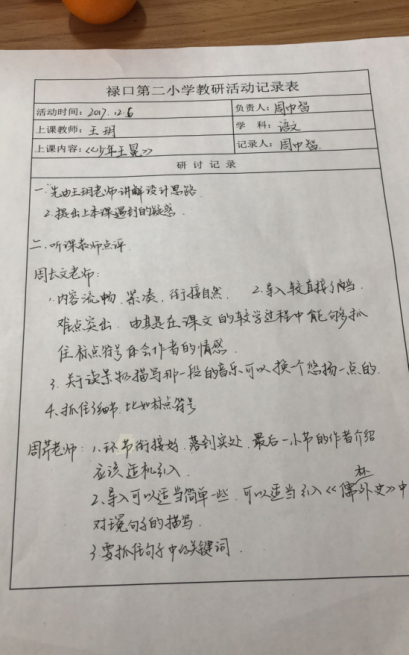 禄口第二小学教研活动记录表
活动时间：2017.12.6 负责人：周中智
上课教师：王玥 学 科：语文
上课内容：《少年王冕》 记录人：周中智
研 讨 记 录
一、1.先由王玥老师讲解设计思路
2.提出上本课遇到的疑惑.
二、听课教师点评
周长文老师：
1.内容流畅、紧凑，衔接自然. 2.导入较直接了当.
难点突出. 尤其是在课文的教学过程中能够抓
住标点符号体会作者的情感.
3.关于读景物描写那一段的音乐可以换个悠扬一点的.
4.抓住细节.比如标点符号
周芹老师：1.环节衔接好.落到实处.最后一小节的作者介绍
应该适机引入.
2.导入可以适当简单一些，可以适当引入《儒林外史》中
对冕句子的描写.
3.要抓住句子中的关键词.